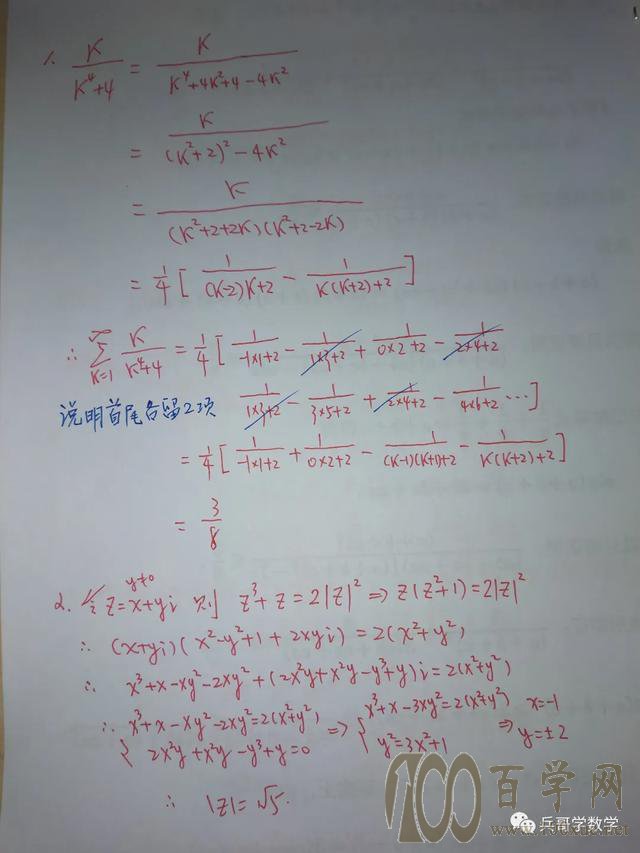 1. K/(K⁴+4) = K/(K⁴+4K²+4-4K²)
= K/((K²+2)²-4K²)
= K/((K²+2+2K)(K²+2-2K))
= 1/4 [ 1/((K-2)K+2) - 1/(K(K+2)+2) ]
∴ ∞ ∑ K=1 K/(K⁴+4) = 1/4 [ 1/(-1×1+2) - 1/(1×3+2) + 1/(0×2+2) - 1/(2×4+2)
说明首尾各留2项 1/(1×3+2) - 1/(3×5+2) + 1/(2×4+2) - 1/(4×6+2) ⋯ ]
= 1/4 [ 1/(-1×1+2) + 1/(0×2+2) - 1/((K-1)(K+1)+2) - 1/(K(K+2)+2) ]
= 3/8
y≠0
2. 令 z=x+yi 则 z³+z=2|z|² ⇒ z(z²+1)=2|z|²
∴ (x+yi)(x²-y²+1+2xyi)=2(x²+y²)
∴ x³+x-xy²-2xy²+(2x²y+x²y-y³+y)i=2(x²+y²)
∴ { x³+x-xy²-2xy²=2(x²+y²) ⇒ { x³+x-3xy²=2(x²+y²) ⇒ x=-1
2x²y+x²y-y³+y=0 y²=3x²+1 y=±2
∴ |z|=√5.
100百学网
兵哥学数学